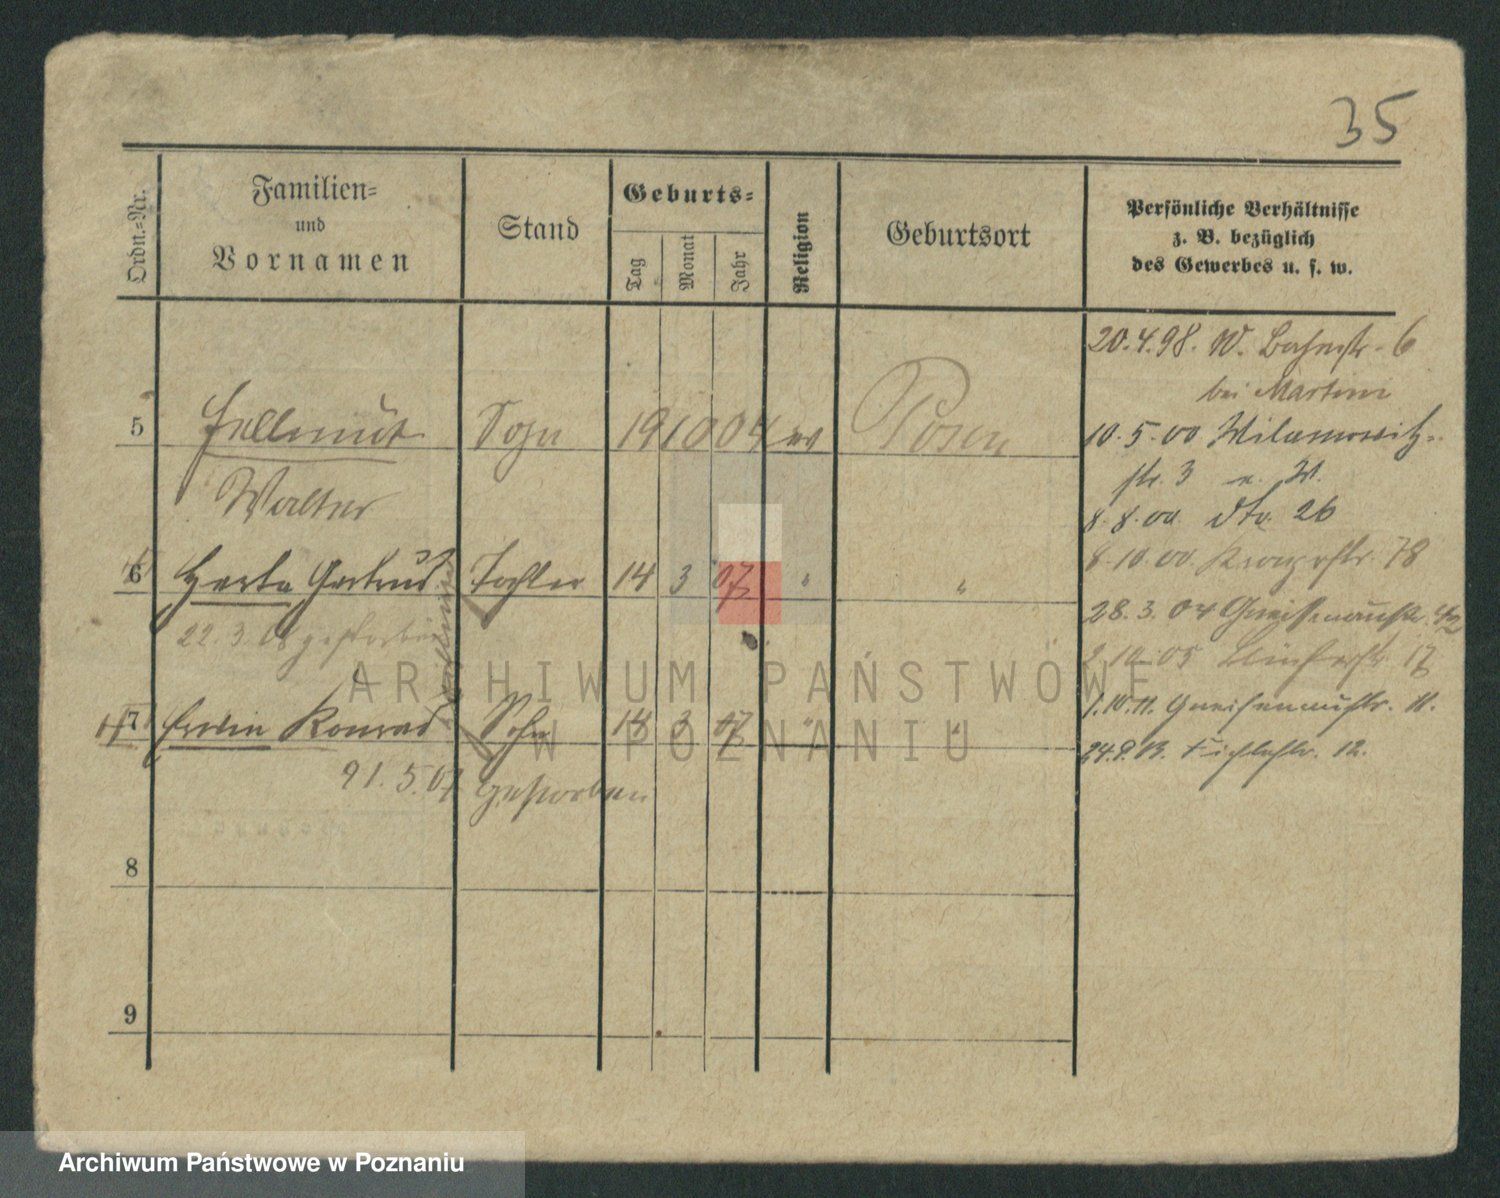 35
Ordn.-Nr.
Familien-
und
Vornamen
Stand
Geburts-
Tag
Monat
Jahr
Religion
Geburtsort
Persönliche Verhältnisse
z. B. bezüglich
des Gewerbes u. s. w.
20.4.98. W. Bahnstr. 6
bei Martini
5 Hellmut Sohn 19 10 04 ev Posen
10.5.00 Wilamowitz-
str. 3
Walter
8.8.00 dto. 26
8.10.00 78
6 Herta Gertrud Tochter 14 3 07 " "
28.3.04 Gneisenaustr.
22.3.08 gestorben
10.05 17
1.10.11. Gneisenaustr. 11.
7 Erwin Konrad Sohn 14 3 07 " "
Zwillinge
24.9.13. Fichtestr. 12.
21.5.07 gestorben
8
9
ARCHIWUM PAŃSTWOWE
W POZNANIU
Archiwum Państwowe w Poznaniu